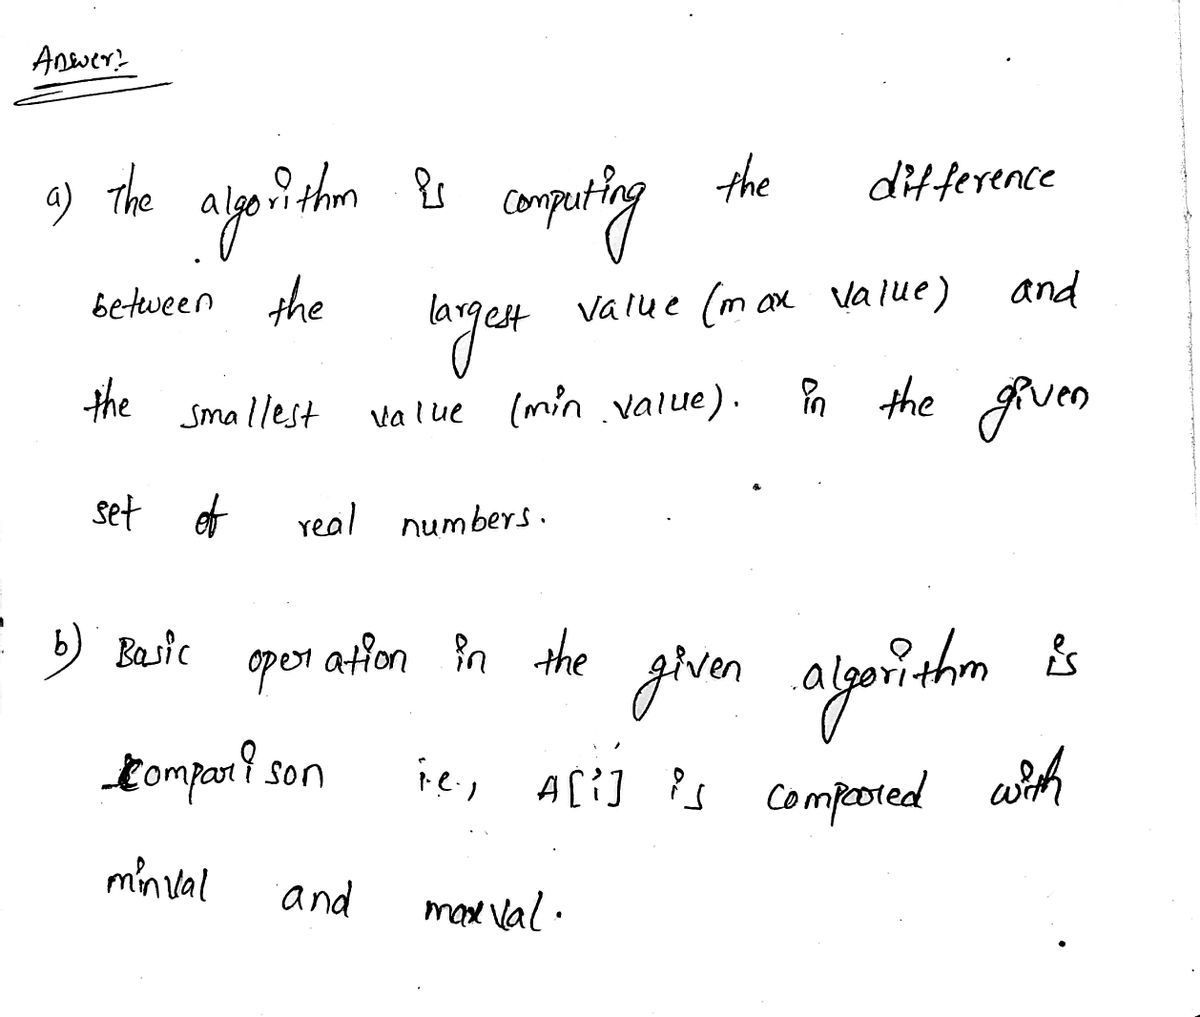 Answer:
a) The algorithm is computing the difference
between the largest value (max value) and
the smallest value (min value). in the given
set of real numbers.
b) Basic operation in the given algorithm is
comparison i.e., A[i] is compared with
minval and maxval.